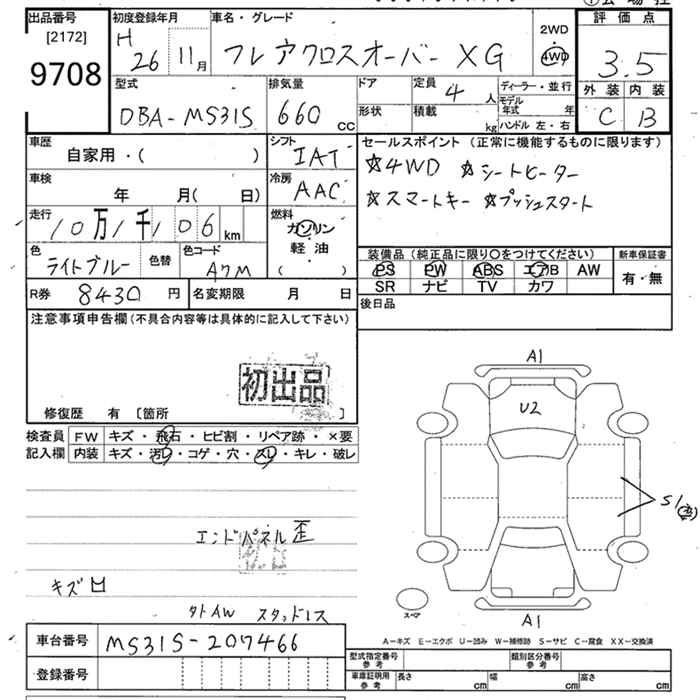 出品番号 [2172] 9708
初度登録年月 H 26 11月
車名・グレード フレアクロスオーバー XG
2WD 4WD
評価点 3.5
外装 内装
C B
型式 DBA-MS31S
排気量 660 CC
ドア 形状
定員 4 人
積載 kg
ディーラー・並行
モデル年式 年
ハンドル 左・右
車歴 自家用・( )
シフト IAT
セールスポイント (正常に機能するものに限ります)
☆4WD ☆シートヒーター
☆スマートキー ☆プッシュスタート
車検 年 月( 日)
冷房 AAC
走行 10万1千106km
燃料 ガソリン・軽油・( )
色 ライトブルー 色替
色コード A7M
装備品 (純正品に限り〇をつけてください) 新車保証書
PS PW ABS エアB AW 有・無
SR ナビ TV カワ
R券 8430円 名変期限 月 日
後日品
注意事項申告欄 (不具合内容等は具体的に記入して下さい)
初出品
修復歴 有 [箇所 ]
検査員記入欄
FW キズ・飛石・ヒビ割・リペア跡・×要
内装 キズ・汚レ・コゲ・穴・スレ・キレ・破レ
A1
U2
S1
エンドパネル歪
キズ凹
スペア
A1
A-キズ E-エクボ U-凹み W-補修跡 S-サビ C-腐食 XX-交換済
車台番号 MS31S-207466
登録番号
型式指定番号 参考
類別区分番号 参考
車庫証明用 参考 長さ cm 幅 cm 高さ cm